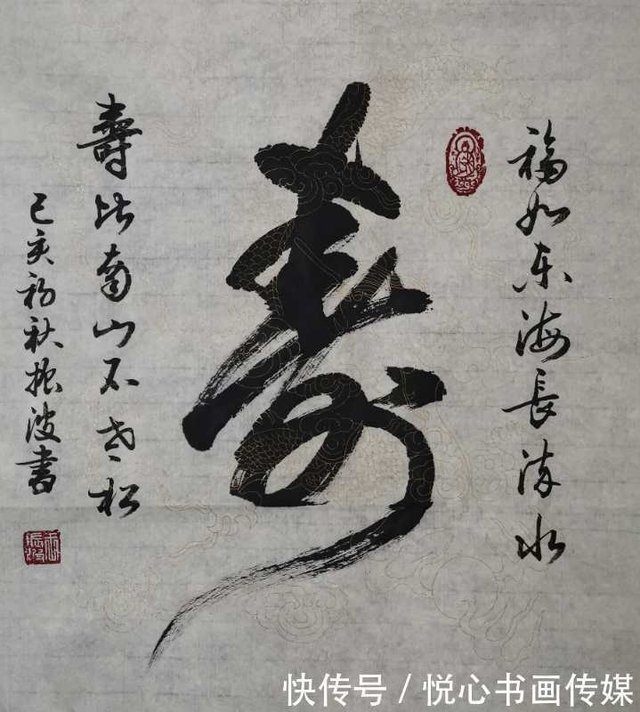 福如东海長流水
寿
壽比南山不老松
己亥初秋振波書
快传号／悦心书画传媒